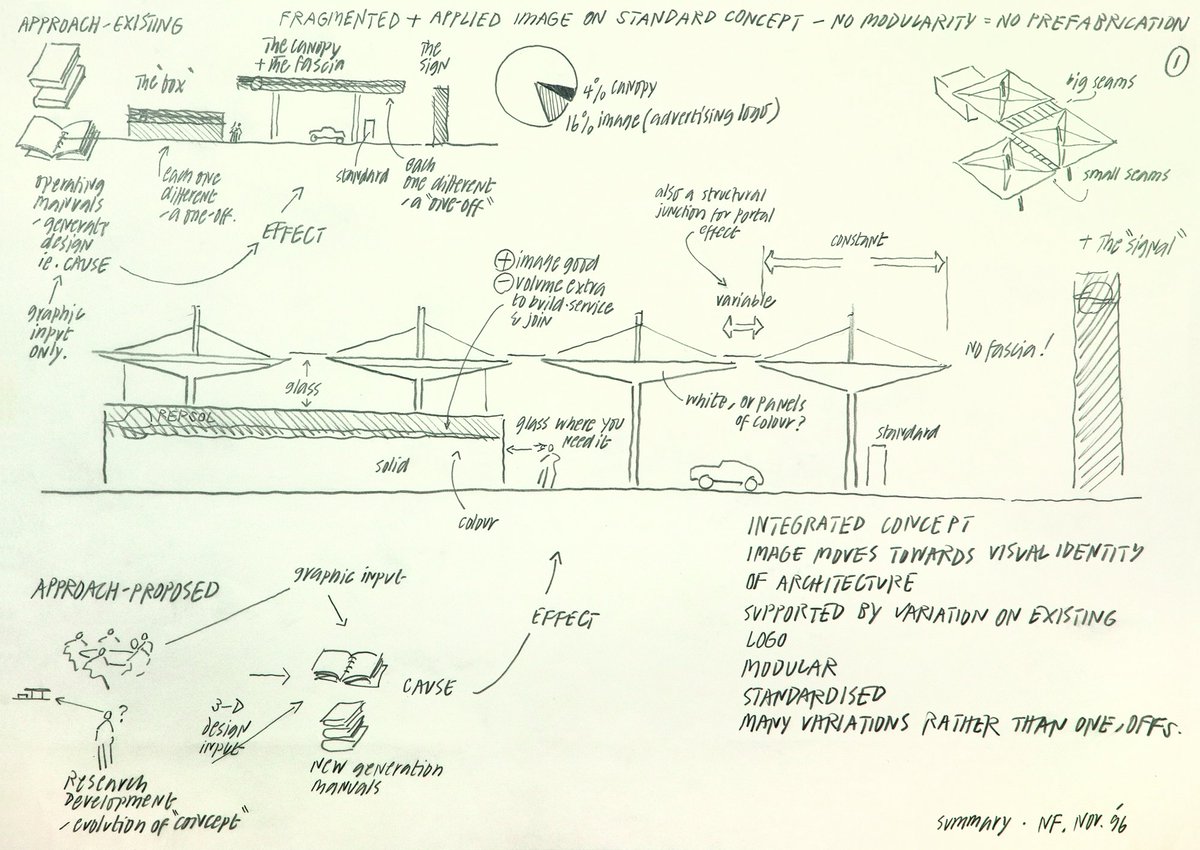 APPROACH-EXISTING
FRAGMENTED + APPLIED IMAGE ON STANDARD CONCEPT - NO MODULARITY = NO PREFABRICATION
1
The "box"
The canopy
+ The fascia
The
sign
4% canopy
16% image (advertising logo)
big seams
small seams
operating
manuals
- generate
design
ie. CAUSE
graphic
input
only.
each one
different
- a one-off.
EFFECT
standard
each
one different
- a "one-off"
also a structural
junction for portal
effect
variable
constant
+ The "signal"
+ image good
- volume extra
to build-service
& join
No fascia!
glass
REPSOL
solid
colour
glass where you
need it
white, or panels
of colour?
standard
INTEGRATED CONCEPT
IMAGE MOVES TOWARDS VISUAL IDENTITY
OF ARCHITECTURE
SUPPORTED BY VARIATION ON EXISTING
LOGO
MODULAR
STANDARDISED
MANY VARIATIONS RATHER THAN ONE-OFFS.
APPROACH-PROPOSED
graphic input
EFFECT
CAUSE
?
3-D
design
input
New generation
manuals
Research
Development
- evolution of "concept"
summary · NF. Nov. '96